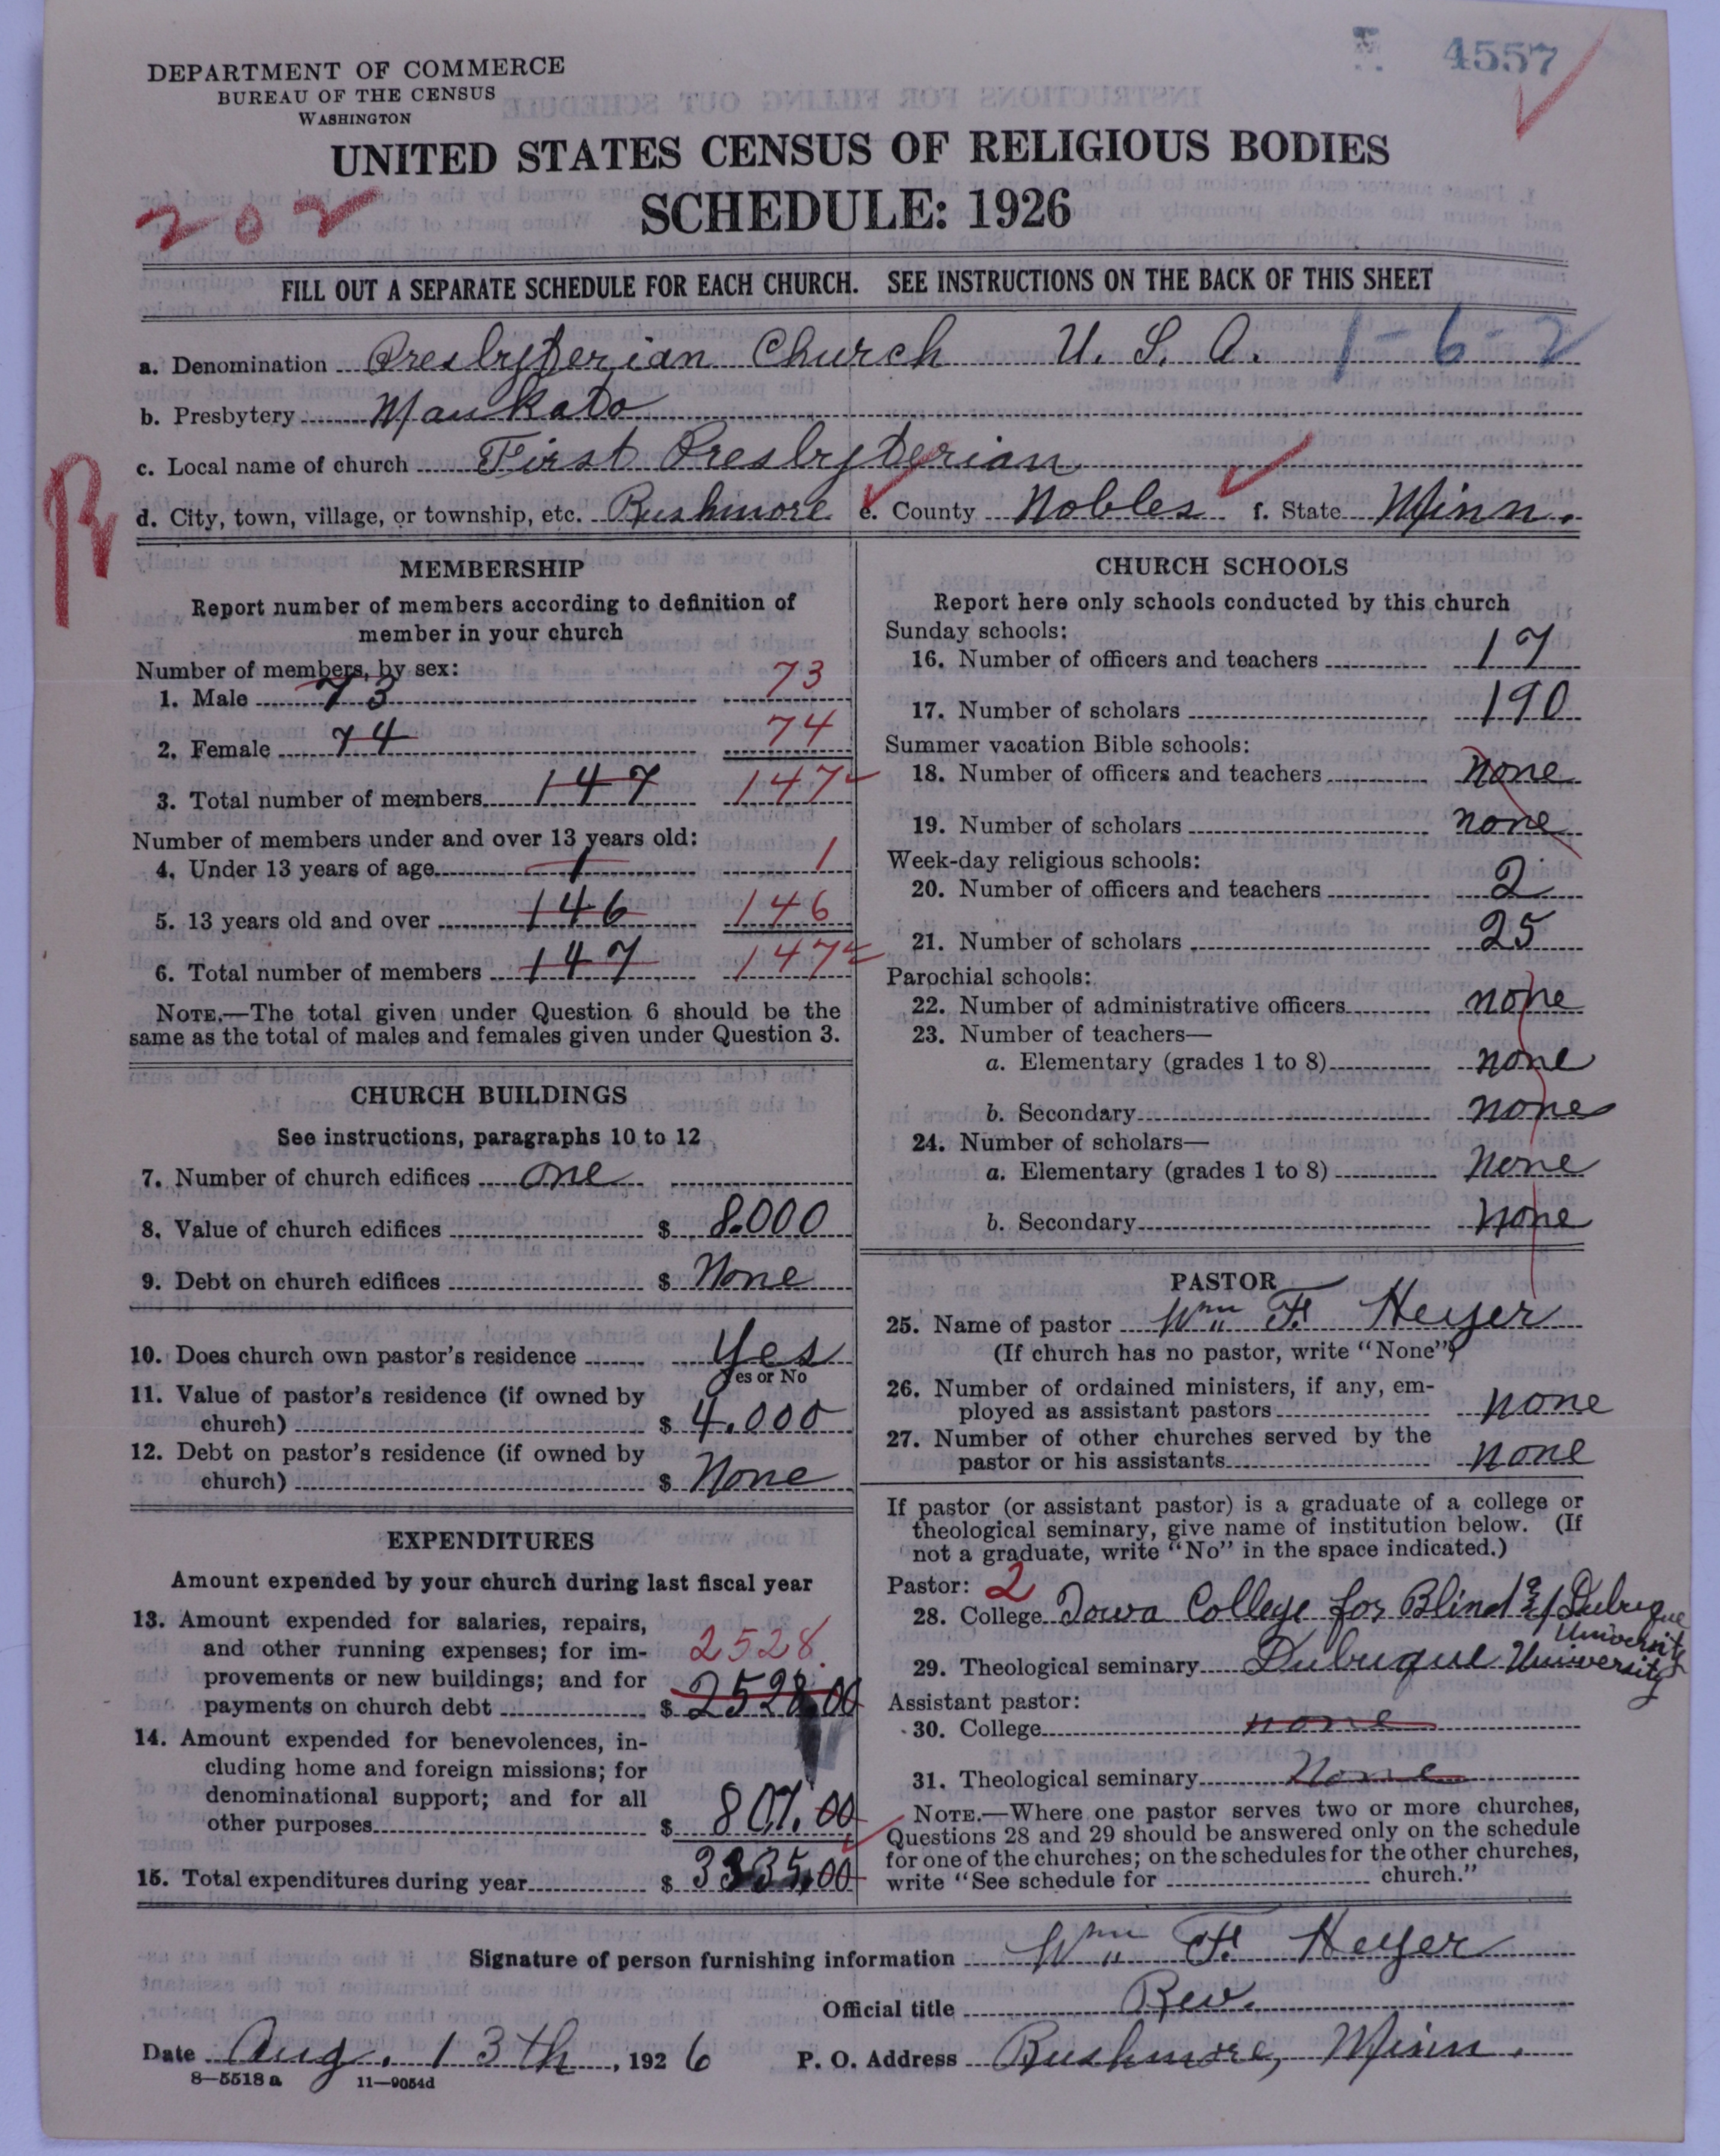 4557
DEPARTMENT OF COMMERCE
BUREAU OF THE CENSUS
WASHINGTON
UNITED STATES CENSUS OF RELIGIOUS BODIES
202
SCHEDULE: 1926
FILL OUT A SEPARATE SCHEDULE FOR EACH CHURCH. SEE INSTRUCTIONS ON THE BACK OF THIS SHEET
a. Denomination Presbyterian Church U. S. A. 1-6-2
b. Presbytery Mankato
c. Local name of church First Presbyterian
R
d. City, town, village, or township, etc. Rushmore e. County Nobles f. State Minn.
MEMBERSHIP
Report number of members according to definition of
member in your church
Number of members, by sex:
1. Male 73 73
2. Female 74 74
3. Total number of members 147 147
Number of members under and over 13 years old:
4. Under 13 years of age 1 1
5. 13 years old and over 146 146
6. Total number of members 147 147
NOTE.—The total given under Question 6 should be the
same as the total of males and females given under Question 3.
CHURCH BUILDINGS
See instructions, paragraphs 10 to 12
7. Number of church edifices one
8. Value of church edifices $ 8.000
9. Debt on church edifices $ None
10. Does church own pastor's residence Yes
Yes or No
11. Value of pastor's residence (if owned by
church) $ 4.000
12. Debt on pastor's residence (if owned by
church) $ None
EXPENDITURES
Amount expended by your church during last fiscal year
13. Amount expended for salaries, repairs,
and other running expenses; for im-
2528.
provements or new buildings; and for
payments on church debt $ 2528.00
14. Amount expended for benevolences, in-
cluding home and foreign missions; for
denominational support; and for all
other purposes $ 807.00
15. Total expenditures during year $ 3335.00
CHURCH SCHOOLS
Report here only schools conducted by this church
Sunday schools:
16. Number of officers and teachers 17
17. Number of scholars 190
Summer vacation Bible schools:
18. Number of officers and teachers none
19. Number of scholars none
Week-day religious schools:
20. Number of officers and teachers 2
21. Number of scholars 25
Parochial schools:
22. Number of administrative officers none
23. Number of teachers—
a. Elementary (grades 1 to 8) none
b. Secondary none
24. Number of scholars—
a. Elementary (grades 1 to 8) None
b. Secondary none
PASTOR
25. Name of pastor Wm F. Heyer
(If church has no pastor, write "None")
26. Number of ordained ministers, if any, em-
ployed as assistant pastors none
27. Number of other churches served by the
pastor or his assistants none
If pastor (or assistant pastor) is a graduate of a college or
theological seminary, give name of institution below. (If
not a graduate, write "No" in the space indicated.)
Pastor: 2
28. College Iowa College for Blind & Dubuque
University
29. Theological seminary Dubuque University
Assistant pastor:
30. College none
31. Theological seminary None
NOTE.—Where one pastor serves two or more churches,
Questions 28 and 29 should be answered only on the schedule
for one of the churches; on the schedules for the other churches,
write "See schedule for church."
Signature of person furnishing information Wm F. Heyer
Official title Rev.
Date Aug. 13th, 1926 P. O. Address Rushmore, Minn.
8—5518a 11—9054d